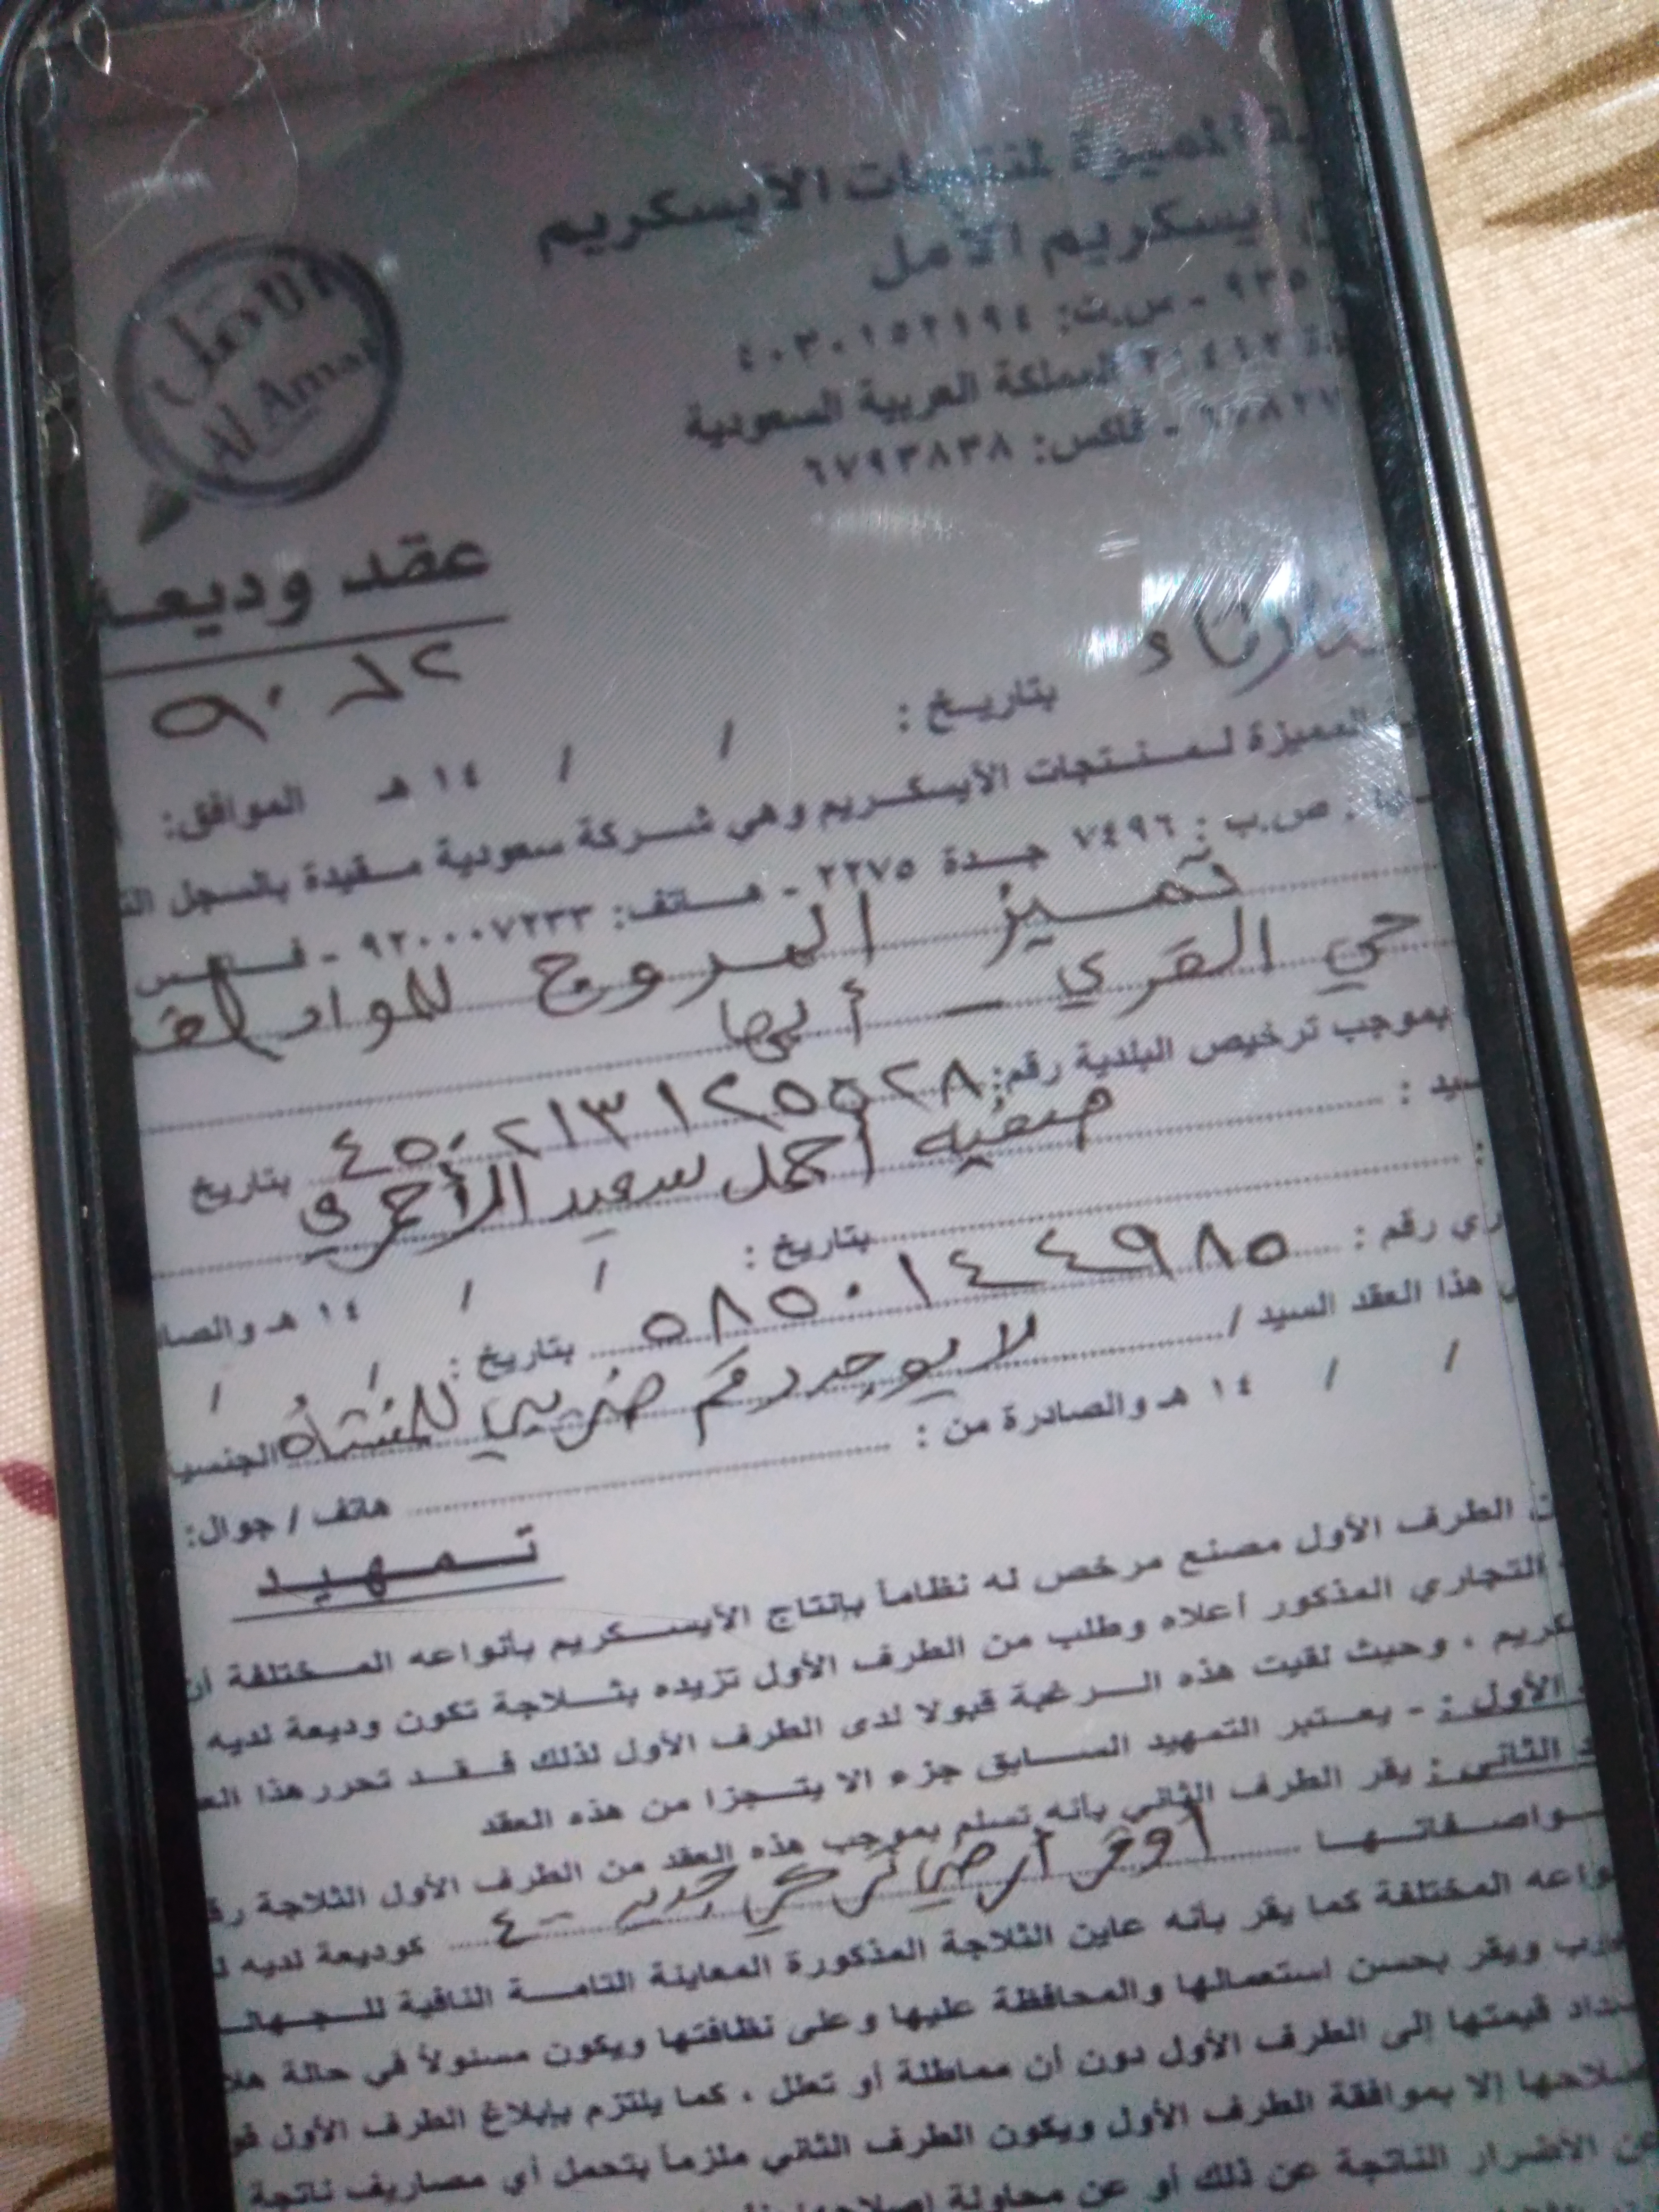 المميزة لمنتجات الآيسكريم
آيسكريم الأمل
٩٣٥ - س.ت: ٤٠٣٠١٥٢١٩٤
٢١٤١٢ المملكة العربية السعودية
فاكس: ٦٧٩٣٨٣٨
الأمل
Al Amal
عقد وديعة
٩٠٨٢
بتاريخ : / / ١٤ هـ الموافق:
المميزة لـمـنـتجات الأيسكـريم وهي شركة سعودية مـقيدة بالسجل
ص.ب : ٧٤٩٦ جـدة ٢٢٧٥ - هـاتف: ٩٢٠٠٠٧٢٣٣ - فـاكس
تميز المروج للمواد
حي القرى - أبها
بموجب ترخيص البلدية رقم: ٤٥٠٢١٣١٢٥٥٢٨ بتاريخ
صفيه أحمد سعيد الأحمري
بتاريخ : / / ١٤ هـ والصا
ري رقم : ٥٨٥٠١٤٤٩٨٥ بتاريخ : / /
هذا العقد السيد / لا يوجد رقم ضريبي للمنشأة الجنسية
/ / ١٤ هـ والصادرة من : هاتف / جوال:
تـمـهـيـد
الطرف الأول مصنع مرخص له نظاماً بإنتاج الآيسـكريم بأنواعه المـختلفة
التجاري المذكور أعلاه وطلب من الطرف الأول تزيده بثـلاجة تكون وديعة لديه
كريم ، وحيث لقيت هذه الـرغبة قبولا لدى الطرف الأول لذلك فـقـد تحرر هذا
الأول : - يعـتبر التمهيد السـابق جزء الا يتـجزا من هذه العقد
الثاني : يقر الطرف الثاني بأنه تسلم بموجب هذه العقد من الطرف الأول الثلاجة
ـواصـفاتـها أوفر أرضي تركي جديد ٤٠٠ كوديعة لديه
المختلفة كما يقر بأنه عاين الثلاجة المذكورة المعاينة التامـة النافية للـجهالـ
ويقر بحسن استعمالها والمحافظة عليها وعلى نظافتها ويكون مسئولاً في حالة
قيمتها إلى الطرف الأول دون أن مماطلة أو تعطل ، كما يلتزم بإبلاغ الطرف الأول
إلا بموافقة الطرف الأول ويكون الطرف الثاني ملزماً بتحمل أي مصاريف ناتجة
الأضرار الناتجة عن ذلك أو عن محاولة إصلاحها